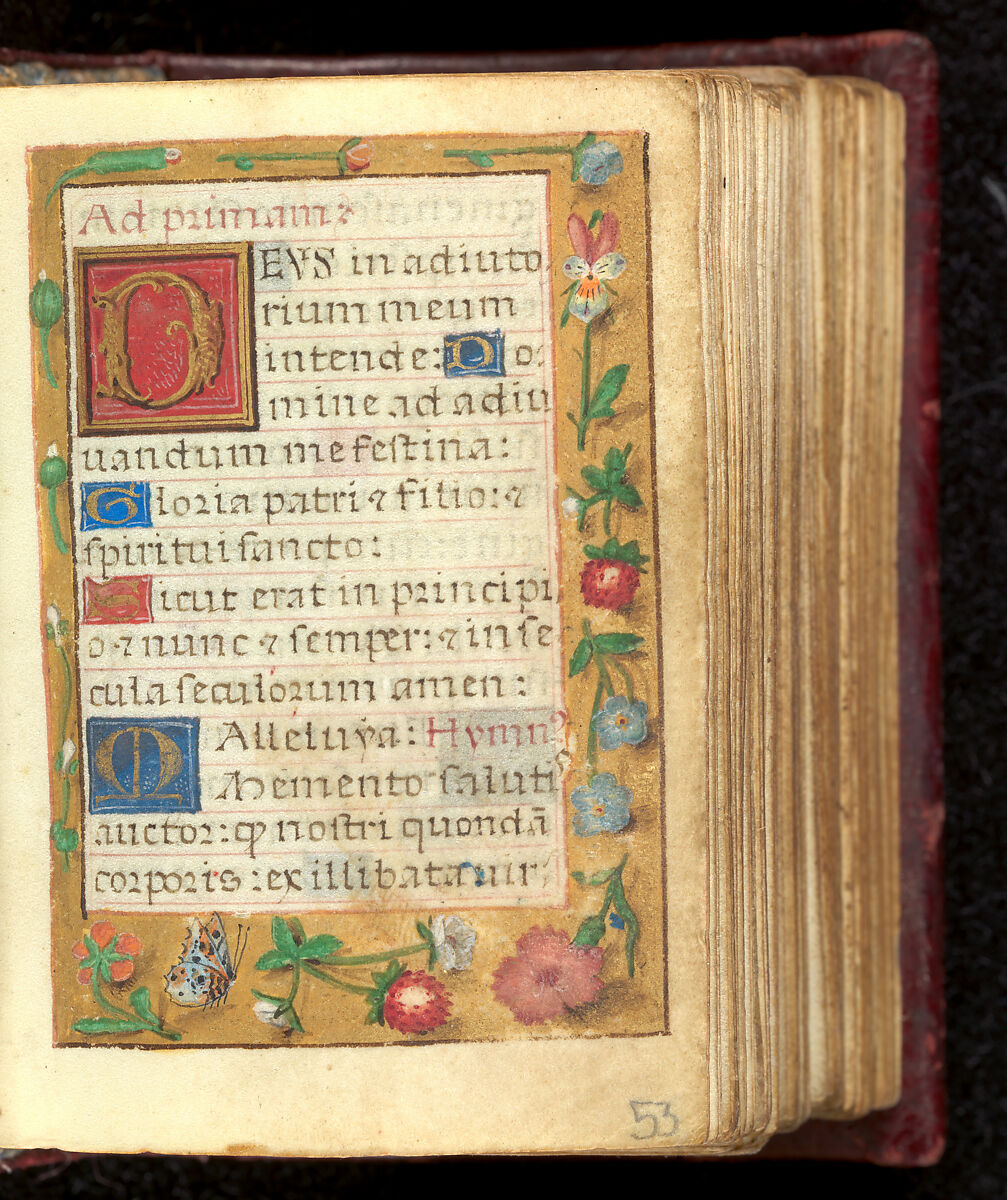 Ad primam
DEVS in adiuto
rium meum
intende: Do
mine ad adiu
uandum me festina:
Gloria patri ⁊ filio: ⁊
spiritui sancto:
Sicut erat in principi
o ⁊ nunc ⁊ semper: ⁊ in se
cula seculorum amen:
Alleluya: Hymn⁹
Memento saluti
auctor: ꝙ nostri quondā
corporis: ex illibata uir
53